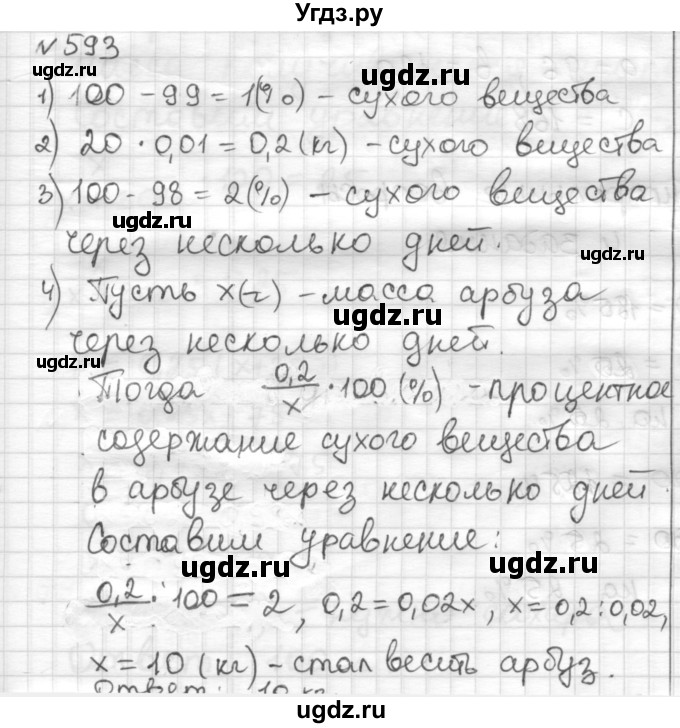 Угдз.ру
N 593
ugdz.ru
1) 100 - 99 = 1(%) - сухого вещества
ugdz.ru
2) 20 · 0,01 = 0,2 (кг) - сухого вещества
3) 100 - 98 = 2(%) - сухого вещества
ugdz.ru
ugdz.ru
через несколько дней.
4) Пусть x(г) - масса арбуза
ugdz.ru
через несколько дней.
ugdz.ru
ugdz.ru
Тогда 0,2/x · 100 (%) - процентное
содержание сухого вещества
ugdz.ru
в арбузе через несколько дней.
Составим уравнение:
ugdz.ru
ugdz.ru
0,2/x · 100 = 2, 0,2 = 0,02x, x = 0,2 : 0,02,
x = 10 (кг) - стал весить арбуз.
ugdz.ru
Ответ: 10 кг
ugdz.ru